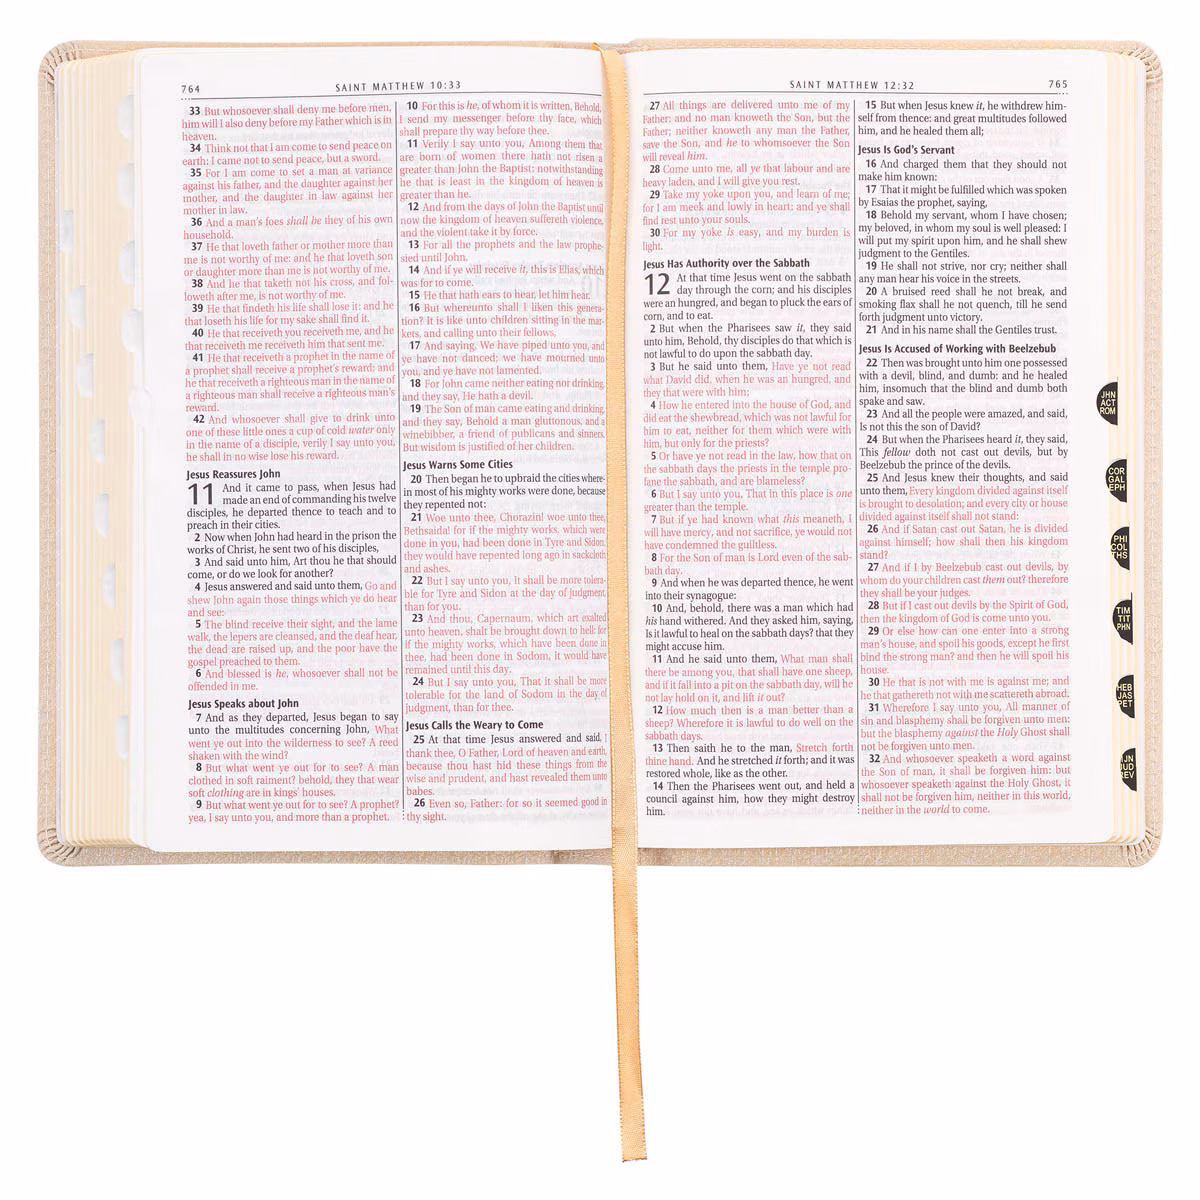 764
SAINT MATTHEW 10:33
33 But whosoever shall deny me before men,
him will I also deny before my Father which is in
heaven.
34 Think not that I am come to send peace on
earth: I came not to send peace, but a sword.
35 For I am come to set a man at variance
against his father, and the daughter against her
mother, and the daughter in law against her
mother in law.
36 And a man's foes shall be they of his own
household.
37 He that loveth father or mother more than
me is not worthy of me: and he that loveth son
or daughter more than me is not worthy of me.
38 And he that taketh not his cross, and fol-
loweth after me, is not worthy of me.
39 He that findeth his life shall lose it: and he
that loseth his life for my sake shall find it.
40 He that receiveth you receiveth me, and he
that receiveth me receiveth him that sent me.
41 He that receiveth a prophet in the name of
a prophet shall receive a prophet's reward; and
he that receiveth a righteous man in the name of
a righteous man shall receive a righteous man's
reward.
42 And whosoever shall give to drink unto
one of these little ones a cup of cold water only
in the name of a disciple, verily I say unto you,
he shall in no wise lose his reward.
Jesus Reassures John
11 And it came to pass, when Jesus had
made an end of commanding his twelve
disciples, he departed thence to teach and to
preach in their cities.
2 Now when John had heard in the prison the
works of Christ, he sent two of his disciples,
3 And said unto him, Art thou he that should
come, or do we look for another?
4 Jesus answered and said unto them, Go and
shew John again those things which ye do hear
and see:
5 The blind receive their sight, and the lame
walk, the lepers are cleansed, and the deaf hear,
the dead are raised up, and the poor have the
gospel preached to them.
6 And blessed is he, whosoever shall not be
offended in me.
Jesus Speaks about John
7 And as they departed, Jesus began to say
unto the multitudes concerning John, What
went ye out into the wilderness to see? A reed
shaken with the wind?
8 But what went ye out for to see? A man
clothed in soft raiment? behold, they that wear
soft clothing are in kings' houses.
9 But what went ye out for to see? A prophet?
yea, I say unto you, and more than a prophet.
10 For this is he, of whom it is written, Behold,
I send my messenger before thy face, which
shall prepare thy way before thee.
11 Verily I say unto you, Among them that
are born of women there hath not risen a
greater than John the Baptist: notwithstanding
he that is least in the kingdom of heaven is
greater than he.
12 And from the days of John the Baptist until
now the kingdom of heaven suffereth violence,
and the violent take it by force.
13 For all the prophets and the law prophe-
sied until John.
14 And if ye will receive it, this is Elias, which
was for to come.
15 He that hath ears to hear, let him hear.
16 But whereunto shall I liken this genera-
tion? It is like unto children sitting in the mar-
kets, and calling unto their fellows,
17 And saying, We have piped unto you, and
ye have not danced; we have mourned unto
you, and ye have not lamented.
18 For John came neither eating nor drinking,
and they say, He hath a devil.
19 The Son of man came eating and drinking,
and they say, Behold a man gluttonous, and a
winebibber, a friend of publicans and sinners.
But wisdom is justified of her children.
Jesus Warns Some Cities
20 Then began he to upbraid the cities where-
in most of his mighty works were done, because
they repented not:
21 Woe unto thee, Chorazin! woe unto thee,
Bethsaida! for if the mighty works, which were
done in you, had been done in Tyre and Sidon,
they would have repented long ago in sackcloth
and ashes.
22 But I say unto you, It shall be more tolera-
ble for Tyre and Sidon at the day of judgment,
than for you.
23 And thou, Capernaum, which art exalted
unto heaven, shalt be brought down to hell: for
if the mighty works, which have been done in
thee, had been done in Sodom, it would have
remained until this day.
24 But I say unto you, That it shall be more
tolerable for the land of Sodom in the day of
judgment, than for thee.
Jesus Calls the Weary to Come
25 At that time Jesus answered and said, I
thank thee, O Father, Lord of heaven and earth,
because thou hast hid these things from the
wise and prudent, and hast revealed them unto
babes.
26 Even so, Father: for so it seemed good in
thy sight.
SAINT MATTHEW 12:32
765
27 All things are delivered unto me of my
Father: and no man knoweth the Son, but the
Father; neither knoweth any man the Father,
save the Son, and he to whomsoever the Son
will reveal him.
28 Come unto me, all ye that labour and are
heavy laden, and I will give you rest.
29 Take my yoke upon you, and learn of me;
for I am meek and lowly in heart: and ye shall
find rest unto your souls.
30 For my yoke is easy, and my burden is
light.
Jesus Has Authority over the Sabbath
12 At that time Jesus went on the sabbath
day through the corn; and his disciples
were an hungred, and began to pluck the ears of
corn, and to eat.
2 But when the Pharisees saw it, they said
unto him, Behold, thy disciples do that which is
not lawful to do upon the sabbath day.
3 But he said unto them, Have ye not read
what David did, when he was an hungred, and
they that were with him;
4 How he entered into the house of God, and
did eat the shewbread, which was not lawful for
him to eat, neither for them which were with
him, but only for the priests?
5 Or have ye not read in the law, how that on
the sabbath days the priests in the temple pro-
fane the sabbath, and are blameless?
6 But I say unto you, That in this place is one
greater than the temple.
7 But if ye had known what this meaneth, I
will have mercy, and not sacrifice, ye would not
have condemned the guiltless.
8 For the Son of man is Lord even of the sab-
bath day.
9 And when he was departed thence, he went
into their synagogue:
10 And, behold, there was a man which had
his hand withered. And they asked him, saying,
Is it lawful to heal on the sabbath days? that they
might accuse him.
11 And he said unto them, What man shall
there be among you, that shall have one sheep,
and if it fall into a pit on the sabbath day, will he
not lay hold on it, and lift it out?
12 How much then is a man better than a
sheep? Wherefore it is lawful to do well on the
sabbath days.
13 Then saith he to the man, Stretch forth
thine hand. And he stretched it forth; and it was
restored whole, like as the other.
14 Then the Pharisees went out, and held a
council against him, how they might destroy
him.
15 But when Jesus knew it, he withdrew him-
self from thence: and great multitudes followed
him, and he healed them all;
Jesus Is God's Servant
16 And charged them that they should not
make him known:
17 That it might be fulfilled which was spoken
by Esaias the prophet, saying,
18 Behold my servant, whom I have chosen;
my beloved, in whom my soul is well pleased: I
will put my spirit upon him, and he shall shew
judgment to the Gentiles.
19 He shall not strive, nor cry; neither shall
any man hear his voice in the streets.
20 A bruised reed shall he not break, and
smoking flax shall he not quench, till he send
forth judgment unto victory.
21 And in his name shall the Gentiles trust.
Jesus Is Accused of Working with Beelzebub
22 Then was brought unto him one possessed
with a devil, blind, and dumb: and he healed
him, insomuch that the blind and dumb both
spake and saw.
23 And all the people were amazed, and said,
Is not this the son of David?
24 But when the Pharisees heard it, they said,
This fellow doth not cast out devils, but by
Beelzebub the prince of the devils.
25 And Jesus knew their thoughts, and said
unto them, Every kingdom divided against itself
is brought to desolation; and every city or house
divided against itself shall not stand:
26 And if Satan cast out Satan, he is divided
against himself; how shall then his kingdom
stand?
27 And if I by Beelzebub cast out devils, by
whom do your children cast them out? therefore
they shall be your judges.
28 But if I cast out devils by the Spirit of God,
then the kingdom of God is come unto you.
29 Or else how can one enter into a strong
man's house, and spoil his goods, except he first
bind the strong man? and then he will spoil his
house.
30 He that is not with me is against me; and
he that gathereth not with me scattereth abroad.
31 Wherefore I say unto you, All manner of
sin and blasphemy shall be forgiven unto men:
but the blasphemy against the Holy Ghost shall
not be forgiven unto men.
32 And whosoever speaketh a word against
the Son of man, it shall be forgiven him: but
whosoever speaketh against the Holy Ghost, it
shall not be forgiven him, neither in this world,
neither in the world to come.
JHN
ACT
ROM
COR
GAL
EPH
PHI
COL
THS
TIM
TIT
PHN
HEB
JAS
PET
JUD
REV